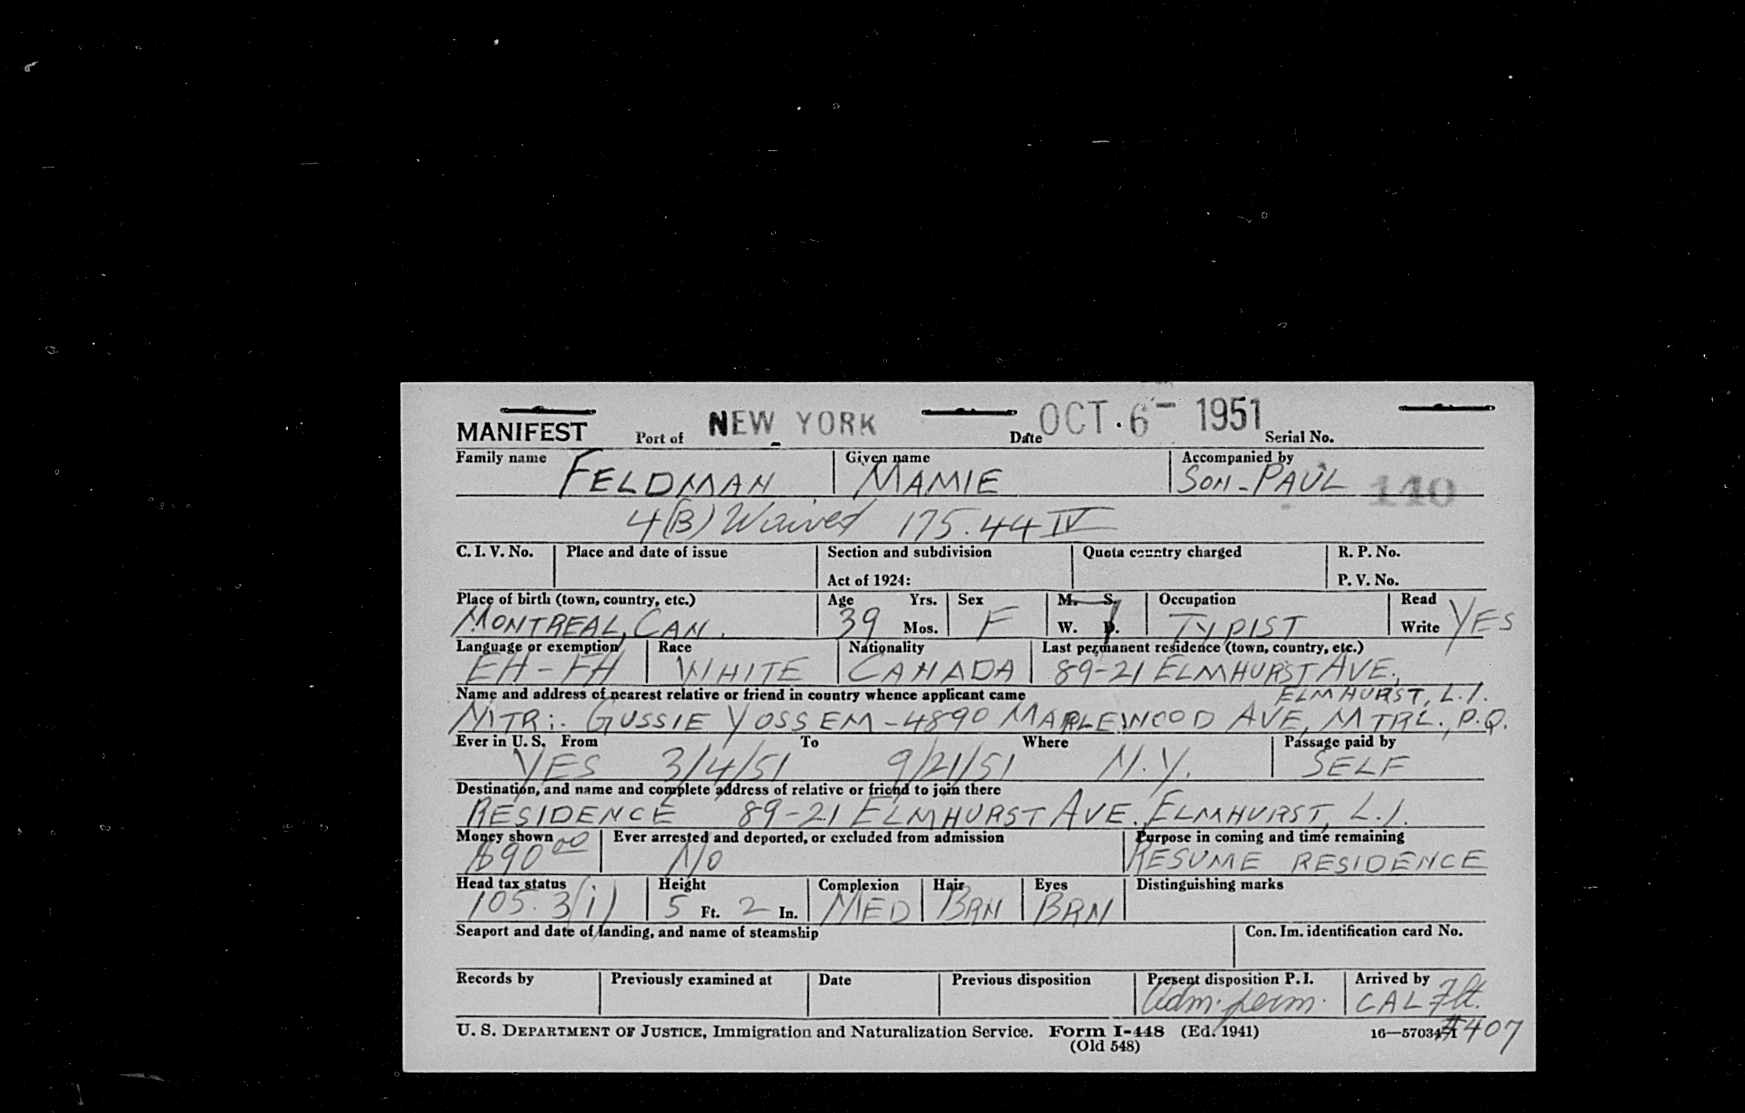 MANIFEST Port of NEW YORK Date OCT. 6 - 1951 Serial No.
Family name FELDMAN Given name MAMIE Accompanied by SON - PAUL 140
4(B) Waived 175.44 IV
C. I. V. No. Place and date of issue Section and subdivision Quota country charged R. P. No.
Act of 1924: P. V. No.
Place of birth (town, country, etc.) Age Yrs. Sex M. S. Occupation Read
MONTREAL, CAN. 39 Mos. F W. D. TYPIST Write YES
Language or exemption Race Nationality Last permanent residence (town, country, etc.)
EH - FH WHITE CANADA 89-21 ELMHURST AVE.,
Name and address of nearest relative or friend in country whence applicant came ELMHURST, L.I.
MTR: GUSSIE YOSSEM - 4890 MAPLEWOOD AVE, MTRL., P.Q.
Ever in U. S. From To Where Passage paid by
YES 3/4/51 9/21/51 N.Y. SELF
Destination, and name and complete address of relative or friend to join there
RESIDENCE 89-21 ELMHURST AVE. ELMHURST, L.I.
Money shown Ever arrested and deported, or excluded from admission Purpose in coming and time remaining
$90.00 NO RESUME RESIDENCE
Head tax status Height Complexion Hair Eyes Distinguishing marks
105.3(i) 5 Ft. 2 In. MED BRN BRN
Seaport and date of landing, and name of steamship Con. Im. identification card No.
Records by Previously examined at Date Previous disposition Present disposition P. I. Arrived by
Adm. perm. CAL Flt.
U. S. DEPARTMENT OF JUSTICE, Immigration and Naturalization Service. Form I-448 (Ed. 1941) 16—57034-1 #407
(Old 548)